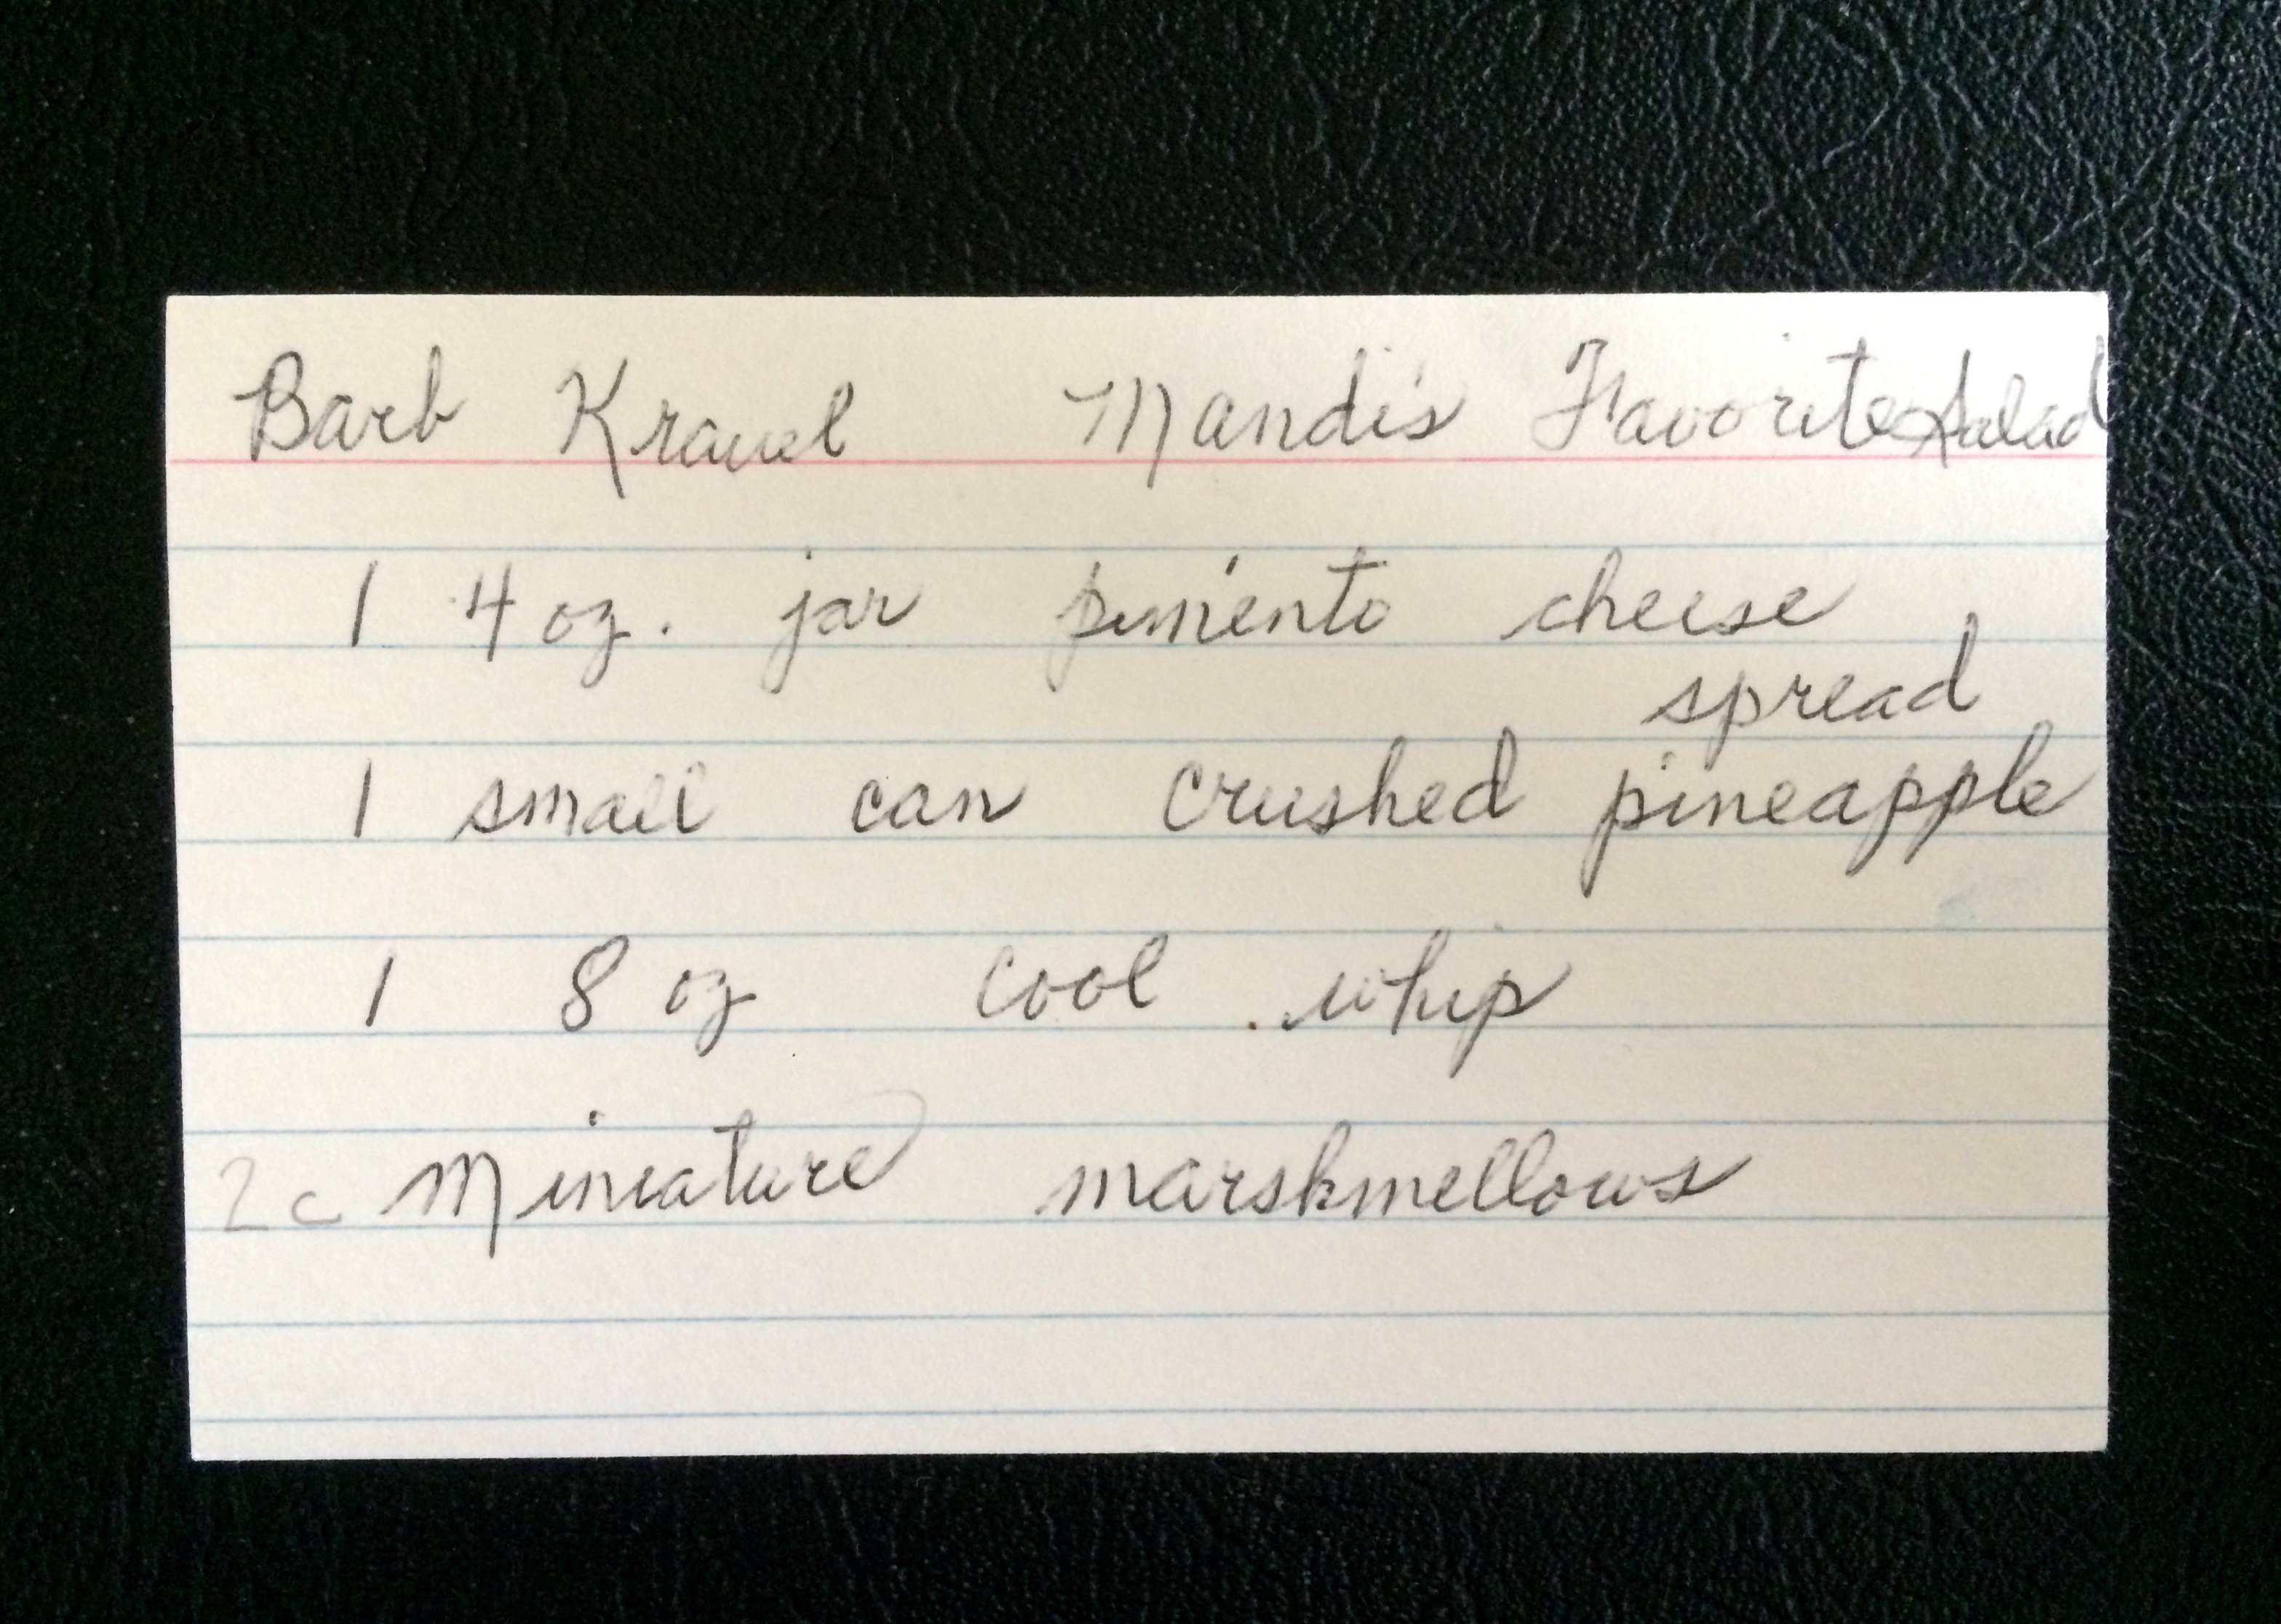 Barb Krauel Mandi's Favorite Salad
1 4 oz. jar pimento cheese
spread
1 small can crushed pineapple
1 8 oz cool whip
2c Minature marshmellows